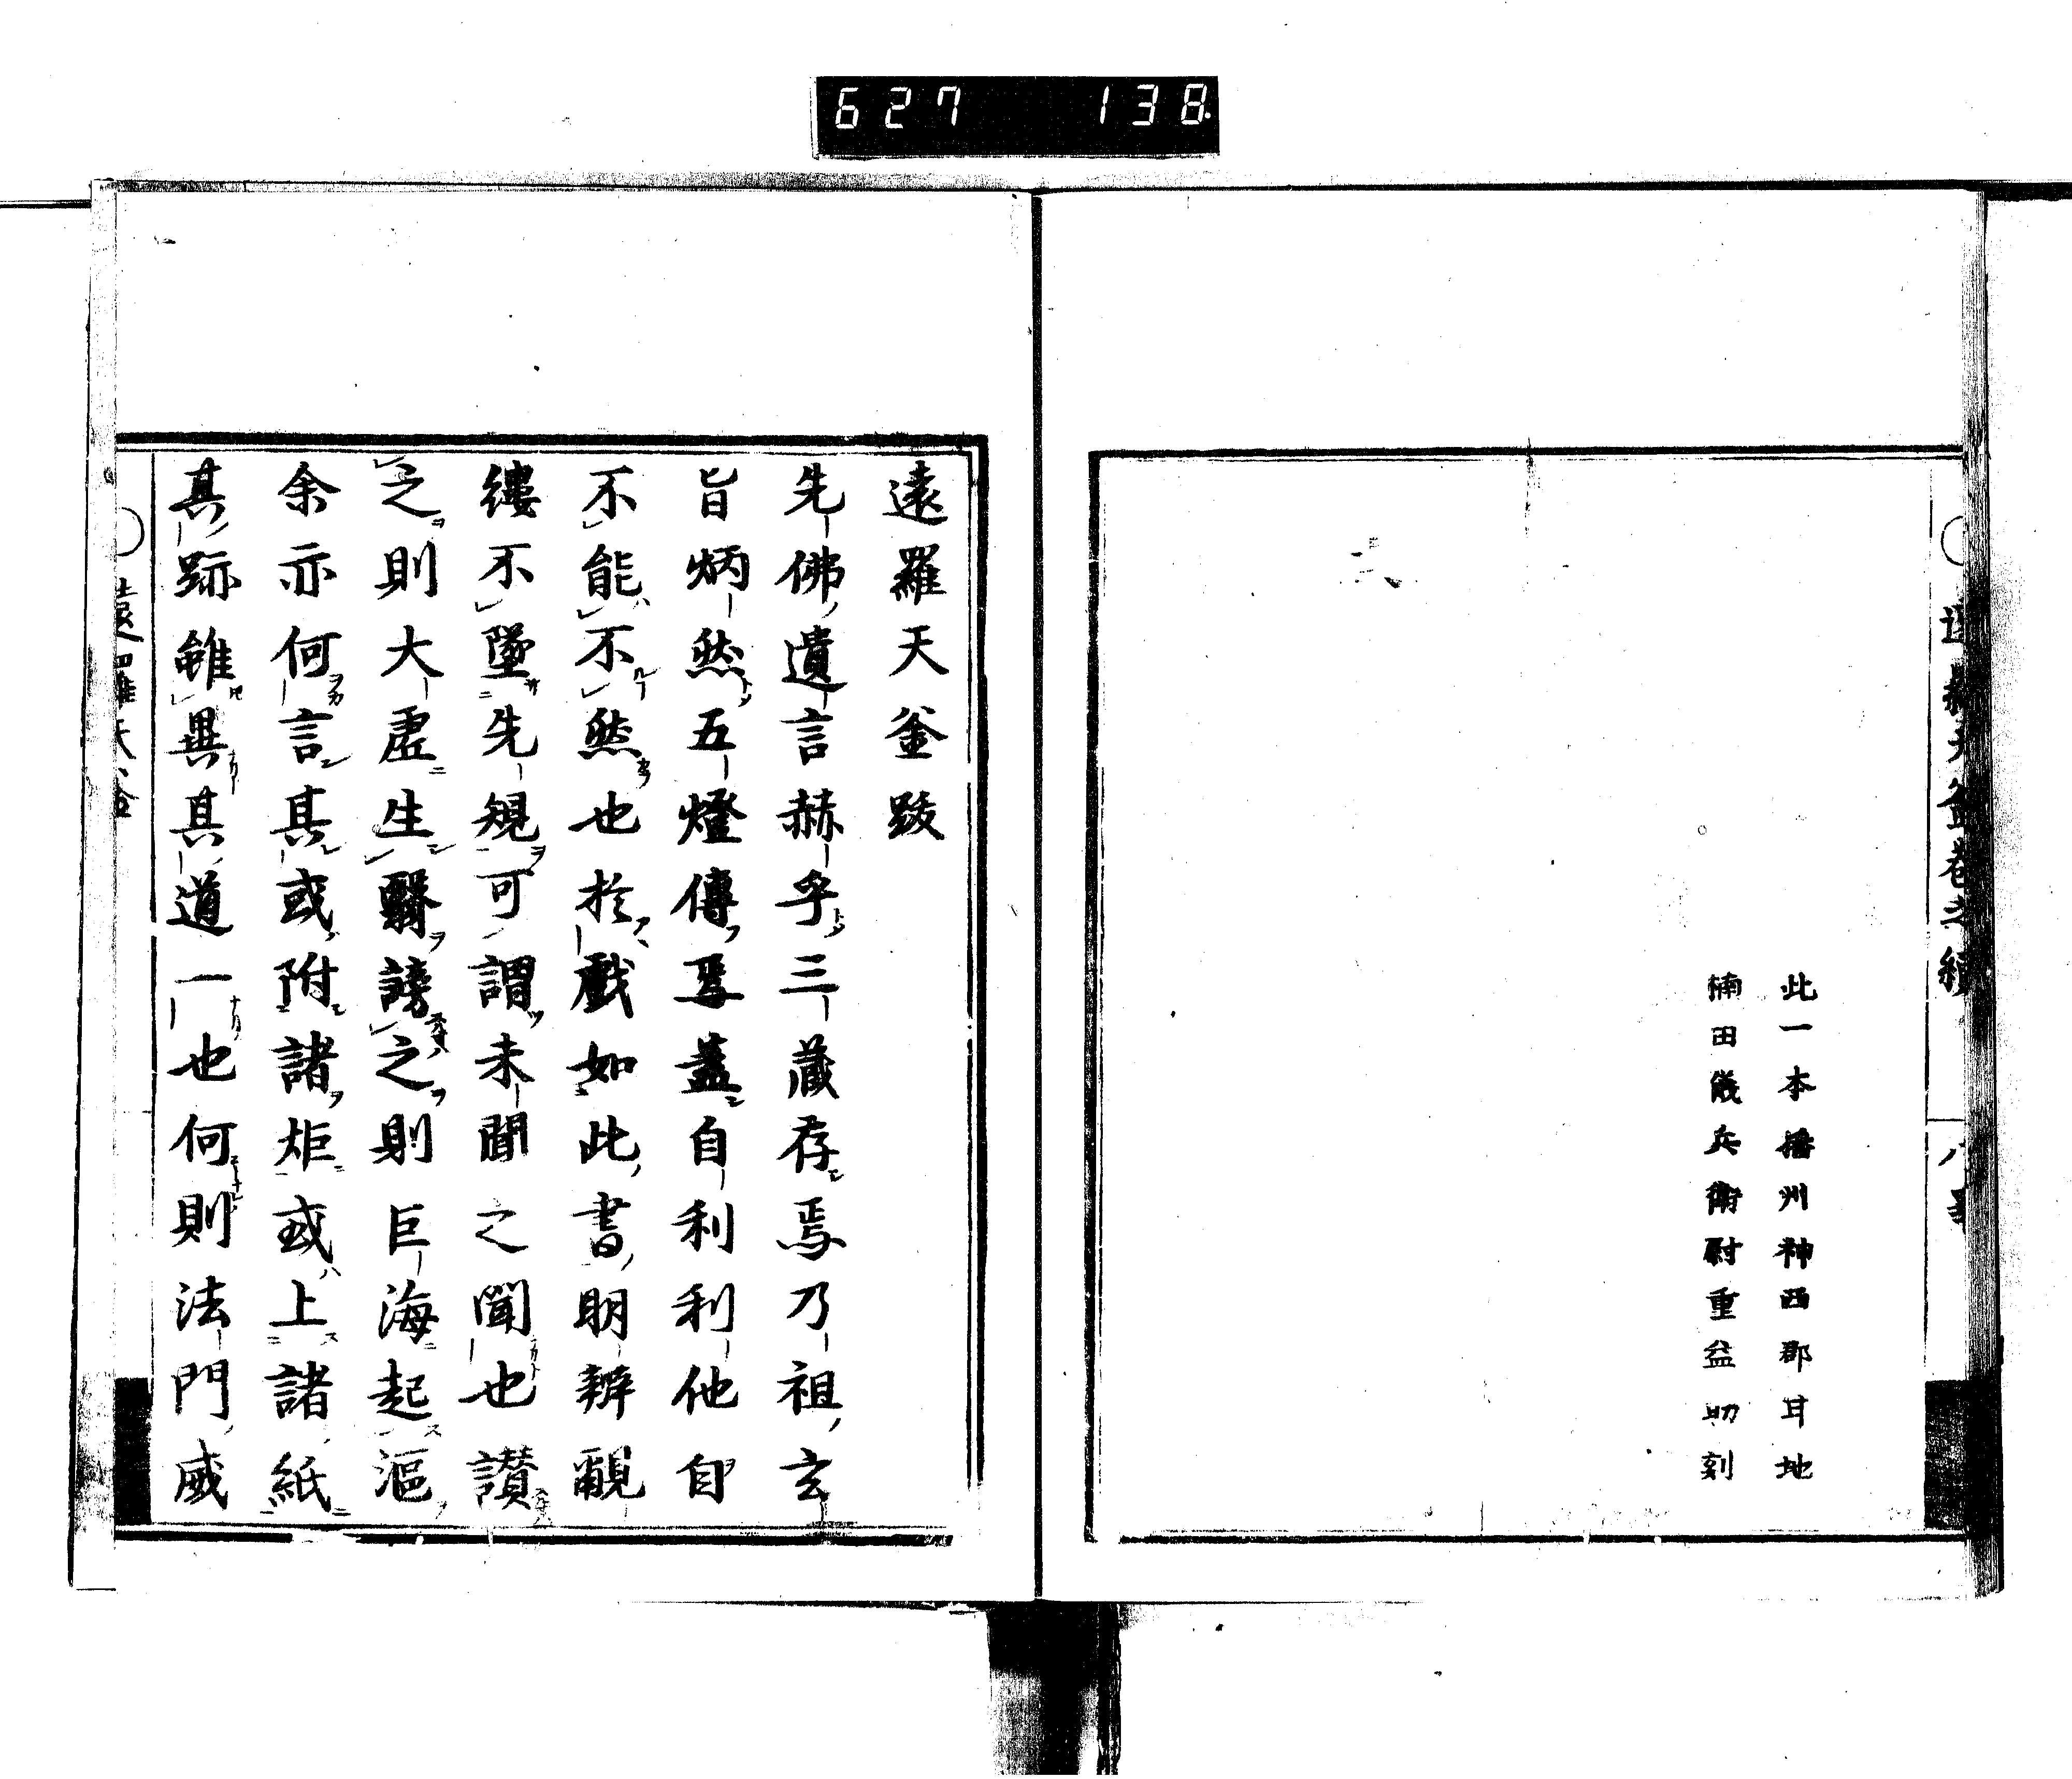 627 138
遠羅天釜巻之續
此一本播州神西郡甘地
楠田儀兵衛尉重益助刻
遠羅天釜跋
先佛遺言赫乎三藏存焉乃祖玄
旨炳然五燈傳焉蓋自利利他自
不能不然也於戲如此書明辨覼
縷不墜先規可謂未聞之聞也讃
之則大虛生翳謗之則巨海起漚
余亦何言其或附諸炬或上諸紙
其跡雖異其道一也何則法門威